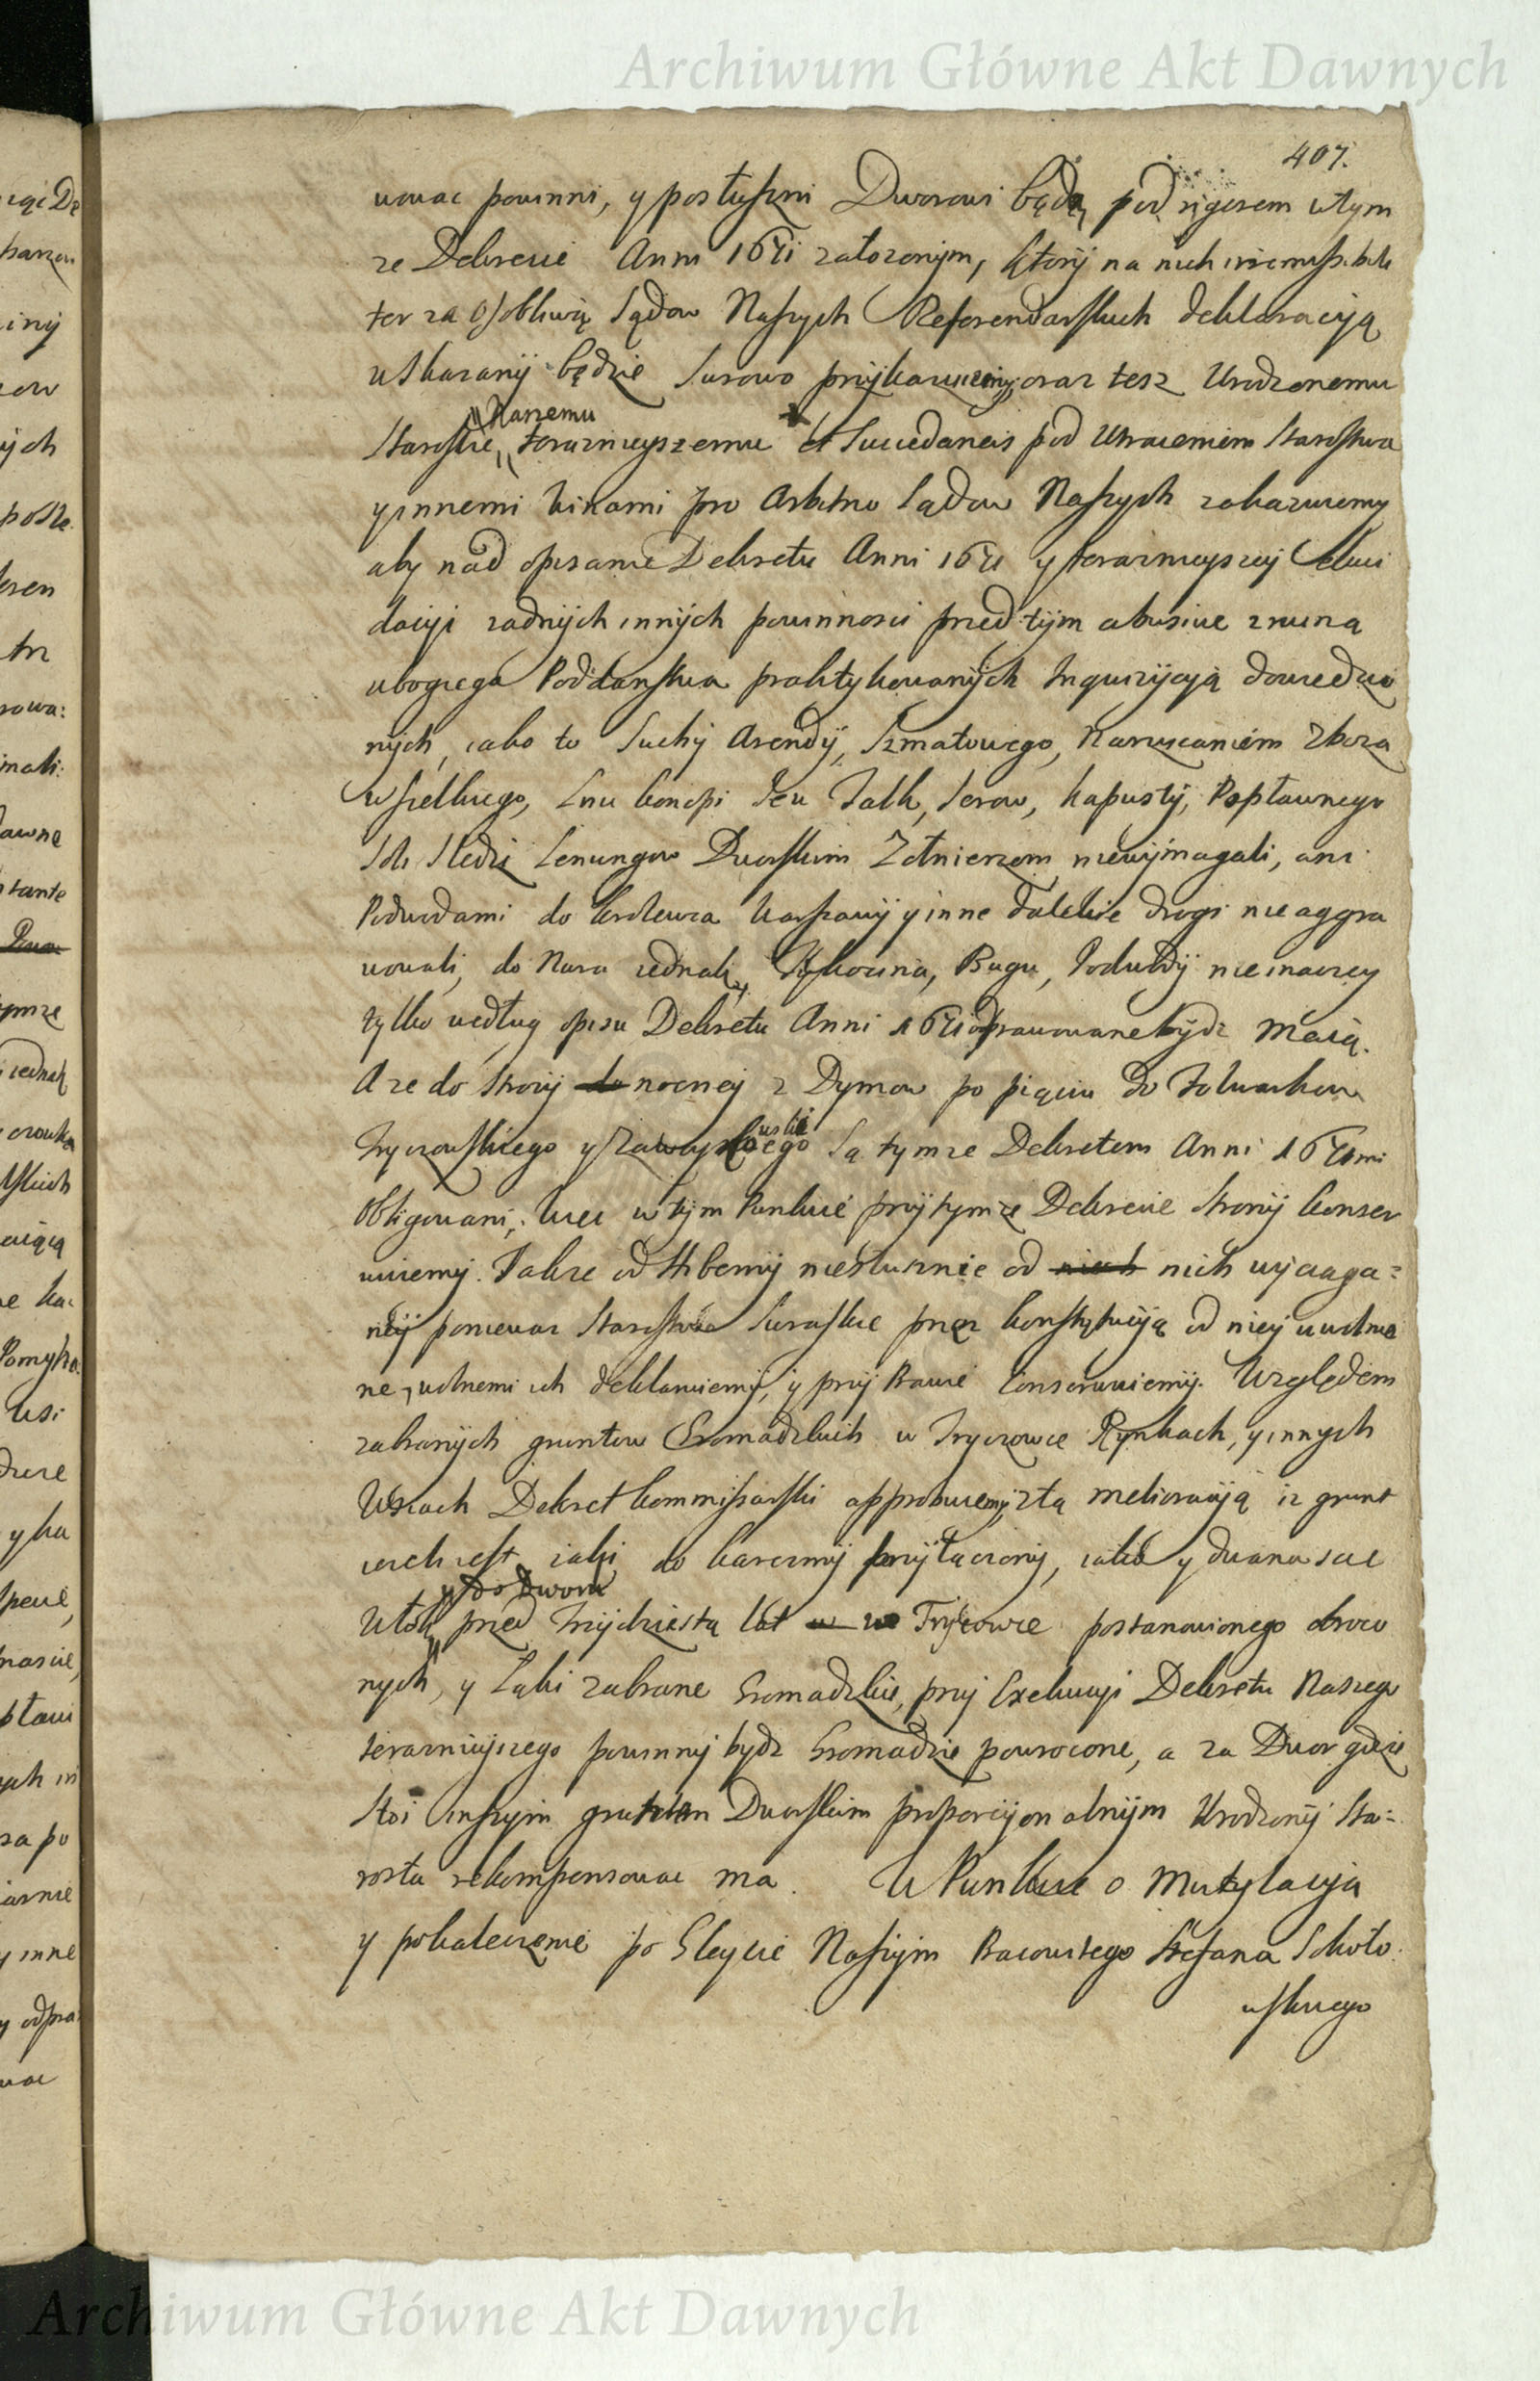 Archiwum Główne Akt Dawnych
407.
wowac powinni, y posłuszni Dworowi będą, pod rigorem wtym
ze Dekrecie Anni 1671 założonym, ktory na nich
ter za osobliwą Sądow Naszych Referendarskich deklaracyą
wskazany będzie surowo przykazuiemy, oraz tesz Urodzonemu
Naszemu
Staroście, teraznieyszemu et Succedaneis pod Utraceniem Starostwa
y innemi winami pro Arbitrio Sądow Naszych zakazuiemy
aby nad opisanie Dekretu Anni 1671 y terazniejszej Eluci
dacyi zadnych innych powinnosci przed tym abusive z ruiną
ubogiego Poddanstwa praktykowanych Inquizycyą dowiedzio
nych, iako to Suchy Arendy, Szmatowego, Narzucaniem Zboza
wszelkiego, Lnu konopi seu Talk, Serow, kapusty, Popławnego
Soli Sledzi Lenungow Dworskim Zołnierzom niewymagali, ani
Podwodami do krolewca Warszawy y inne dalekie drogi nie aggra
wowali, do Nura iednak, Tykocina, Bugu, Podwody nie inaczey
tylko według opisu Dekretu Anni 1671 odprawowane bydz maią.
A ze do Strozy do nocney z Dymow po pięciu do Folwarkow
Tryczowskiego y Zawykowskiego Są tymze Dekretem Anni 1671mi
Obligowani, wiec w tym Punkcie przy tymze Dekrecie Strony konser
wuiemy. Takze od Hyberny niesłusznie od nich nich wyciąga=
ney poniewaz Starostwo Suraskie przez konstytucyą od niey uwolnio
ne, wolnemi ich deklaruiemy, y przy Prawie konserwuiemy. Względem
zabranych gruntow Gromadzkich w Tryczowce Rynkach, y innych
Wsiach Dekret kommissarski approbuiemy z tą melioracyą iz grunt
iesli iest iaki do karczmy przyłączony, iako y dwanascie
y do Dworu
Włok przed trzydziestą lat w w Tryczowce postanowionego obroco
nych, y Łąki zabrane Gromadzkie, przy Exekucyi Dekretu Naszego
terazniejszego powinny bydz Gromadzie powrocone, a za Dwor gdzie
Stoi inszym gruntem Dworskim proporcyonalnym Urodzony Sta=
rosta rekompensowac ma. W Punkcie o Mutylacyą
y pokaleczenie po Gleycie Naszym Pracowitego Stefana Sokoło.
wskiego
Archiwum Główne Akt Dawnych